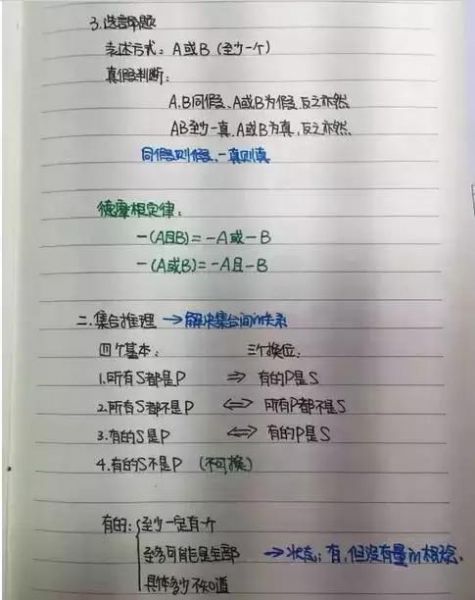 3.选言命题
表述方式：A或B（至少一个）
真假判断：
A.B同假、A或B为假，反之亦然
AB至少一真，A或B为真，反之亦然
同假则假、一真则真
德摩根定律：
－(A且B)＝－A或－B
－(A或B)＝－A且－B
二.集合推理 →解决集合间的关系
四个基本： 三个换位：
1.所有S都是P ⇒ 有的P是S
2.所有S都不是P ⇔ 所有P都不是S
3.有的S是P ⇔ 有的P是S
4.有的S不是P （不可换）
有的：{至少一定有一个
至多可能是全部 →状态：有，但没有量的概念.
具体多少不知道